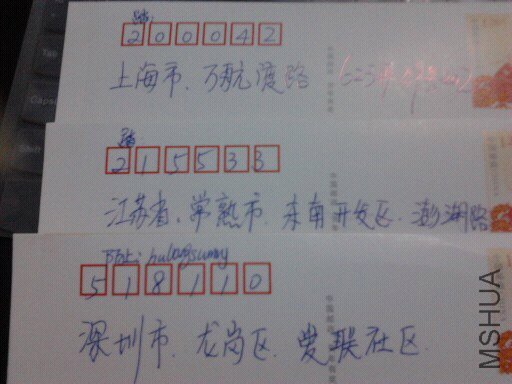 200042
上海市、万航渡路
215533
江苏省、常熟市、东南开发区、澎湖路
518110
深圳市、龙岗区、爱联社区
MSHUA